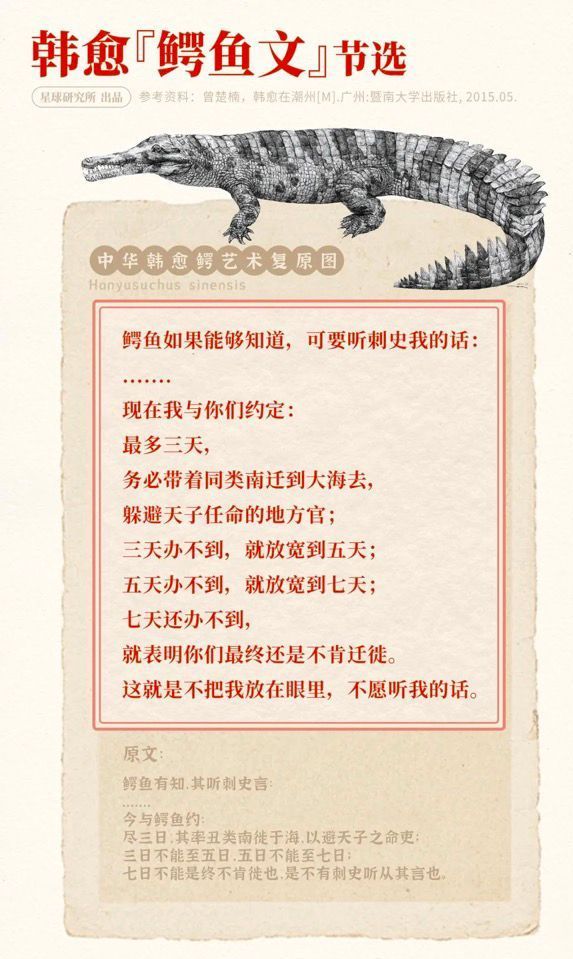 韩愈『鳄鱼文』节选
星球研究所 出品 参考资料：曾楚楠，韩愈在潮州[M].广州:暨南大学出版社, 2015.05.
中华韩愈鳄艺术复原图
Hanyusuchus sinensis
鳄鱼如果能够知道，可要听刺史我的话：
.......
现在我与你们约定：
最多三天，
务必带着同类南迁到大海去，
躲避天子任命的地方官；
三天办不到，就放宽到五天；
五天办不到，就放宽到七天；
七天还办不到，
就表明你们最终还是不肯迁徙。
这就是不把我放在眼里，不愿听我的话。
原文：
鳄鱼有知,其听刺史言:
.......
今与鳄鱼约:
尽三日,其率丑类南徙于海,以避天子之命吏;
三日不能至五日,五日不能至七日;
七日不能是终不肯徙也,是不有刺史听从其言也。